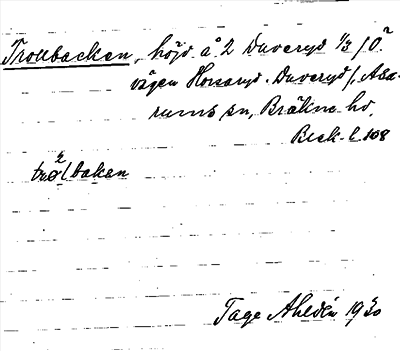 Trollbacken, höjd å 2 Duveryd 1/3 / Ö.
vägen Horsaryd - Duveryd /, Asa-
rums sn, Bräkne hd,
Blek. l. 108
trol2baken
Tage Ahldén 1930